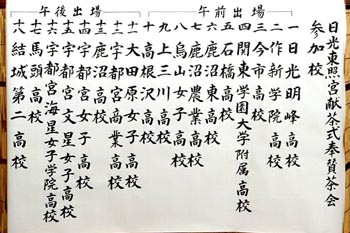 日光東照宮献茶式奉賛茶会
参加校
午前出場
一 日光明峰高校
二 作新学院高校
三 今市高校
四 関東学園大学附属高校
五 石橋高校
六 鹿沼東高校
七 鹿沼農業高校
八 烏山女子高校
九 上三川高校
十 高根沢高校
午後出場
十一 大田原女子高校
十二 宇都宮商業高校
十三 鹿沼高校
十四 宇都宮女子高校
十五 宇都宮文星女子高校
十六 宇都宮海星女子学院高校
十七 馬頭高校
十八 結城第二高校